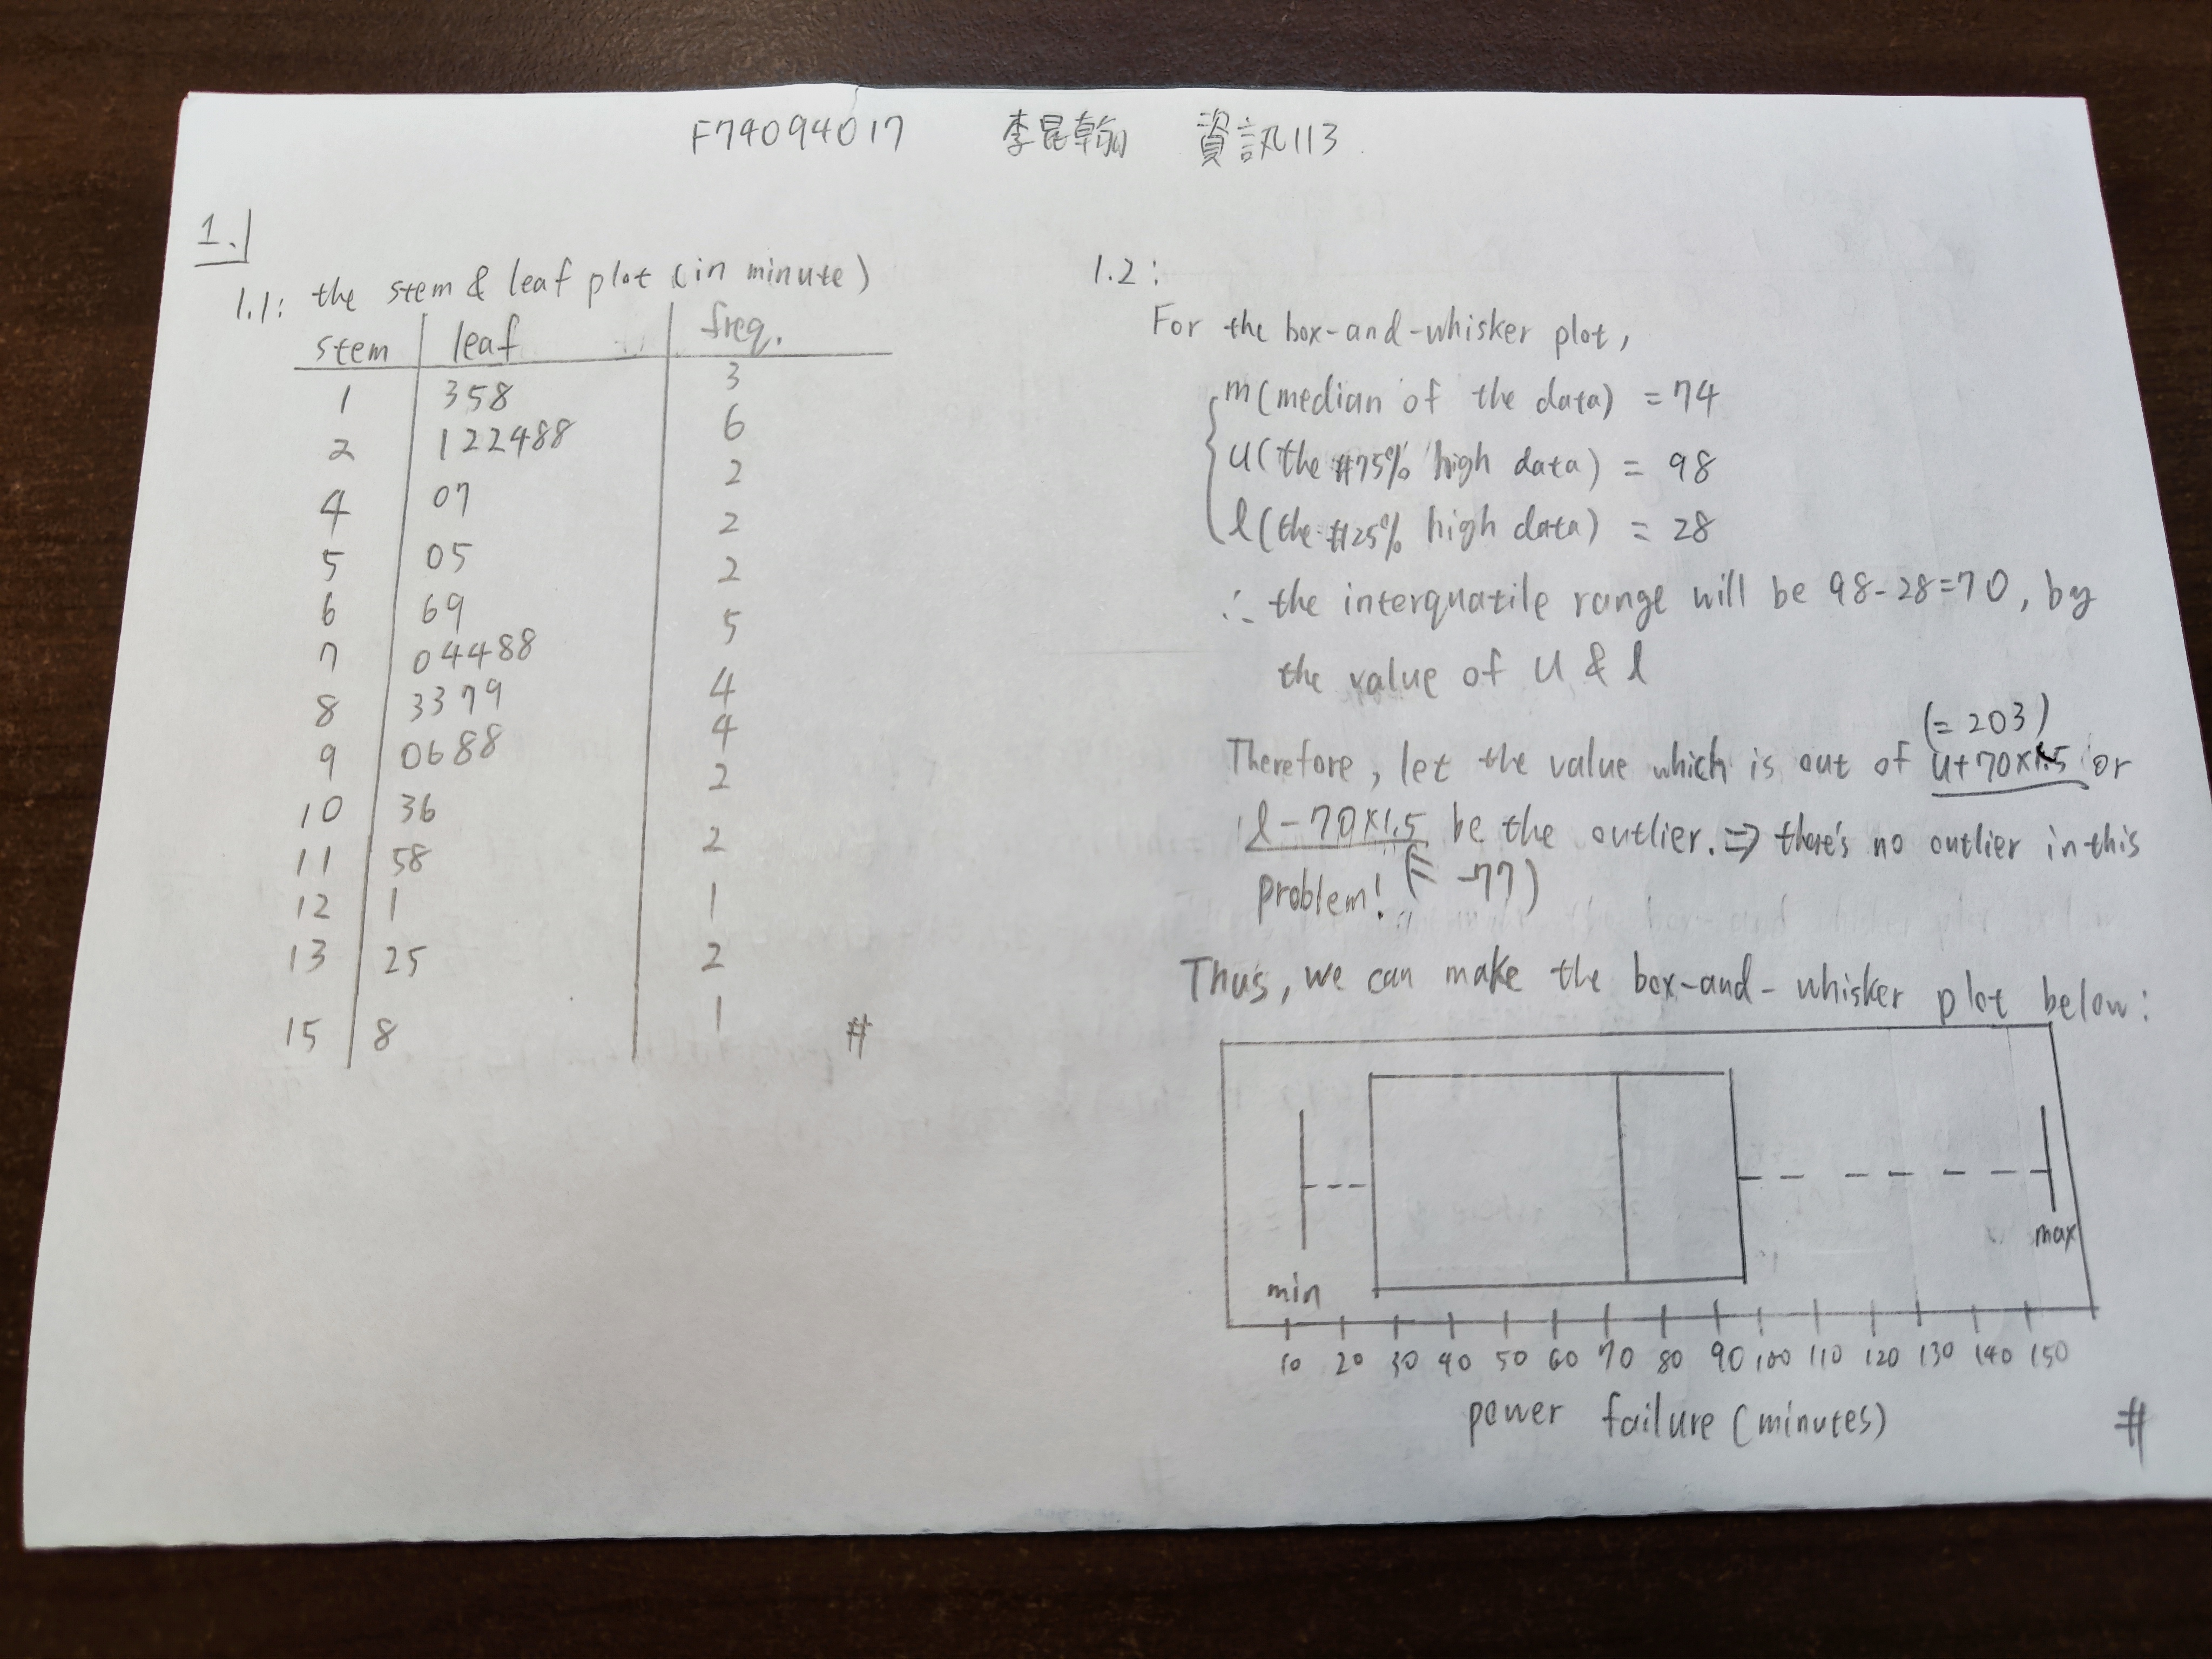 F74094017 李昆翰 資訊113
1.
1.1: the stem & leaf plot (in minute)
stem leaf freq.
1 358 3
2 122488 6
4 07 2
5 05 2
6 69 2
7 04488 5
8 3379 4
9 0688 4
10 36 2
11 58 2
12 1 1
13 25 2
15 8 1 #
1.2:
For the box-and-whisker plot,
m(median of the data) = 74
u(the #75% high data) = 98
l(the #25% high data) = 28
∴ the interquatile range will be 98-28=70, by
the value of u & l
(= 203)
Therefore, let the value which is out of u+70×1.5 or
l-70×1.5 be the outlier. ⇒ there's no outlier in this
problem! (= -77)
Thus, we can make the box-and-whisker plot below:
max
min
10 20 30 40 50 60 70 80 90 100 110 120 130 140 150
power failure (minutes)
#